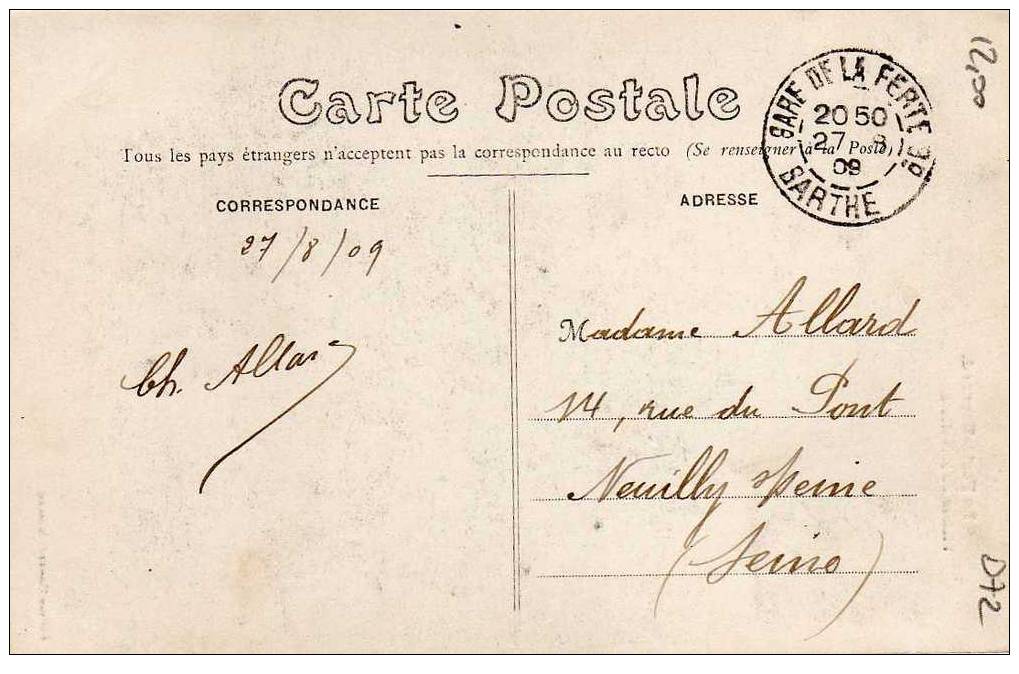 Carte Postale
Tous les pays étrangers n'acceptent pas la correspondance au recto (Se renseigner à la Poste)
GARE DE LA FERTE
20 50
27 - 8
09
SARTHE
12,00
CORRESPONDANCE
27/8/09
Ch. Allard
ADRESSE
Madame Allard
14, rue du Pont
Neuilly s/Seine
(Seine)
D72